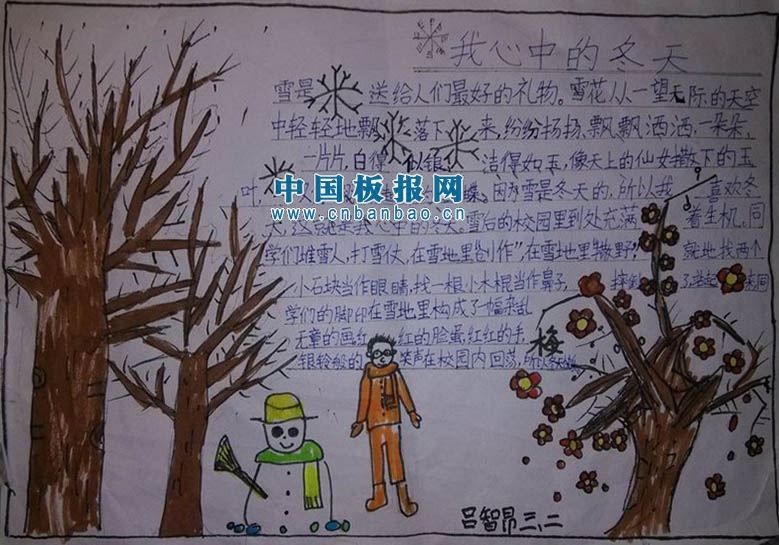 我心中的冬天
雪是 送给人们最好的礼物。雪花从一望无际的天空
中轻轻地飘 落下 来,纷纷扬扬,飘飘洒洒,一朵朵,
一片片,白得 似银 洁得如玉,像天上的仙女撒下的玉
叶, 蝶。因为雪是冬天的,所以我 喜欢冬
中国板报网
www.cnbanbao.cn
天,这就是我心中的冬天。雪后的校园里到处充满 着生机。同
学们堆雪人,打雪仗,在雪地里“创作”,在雪地里“撒野”。 就地找两个
小石块当作眼睛,找一根小木棍当作鼻子, 摔倒 了,站起 来,同
学们的脚印在雪地里构成了一幅杂乱
无章的画,红 红的脸蛋,红红的手,
银铃般的 笑声在校园内回荡,
梅
吕智昂 三、二